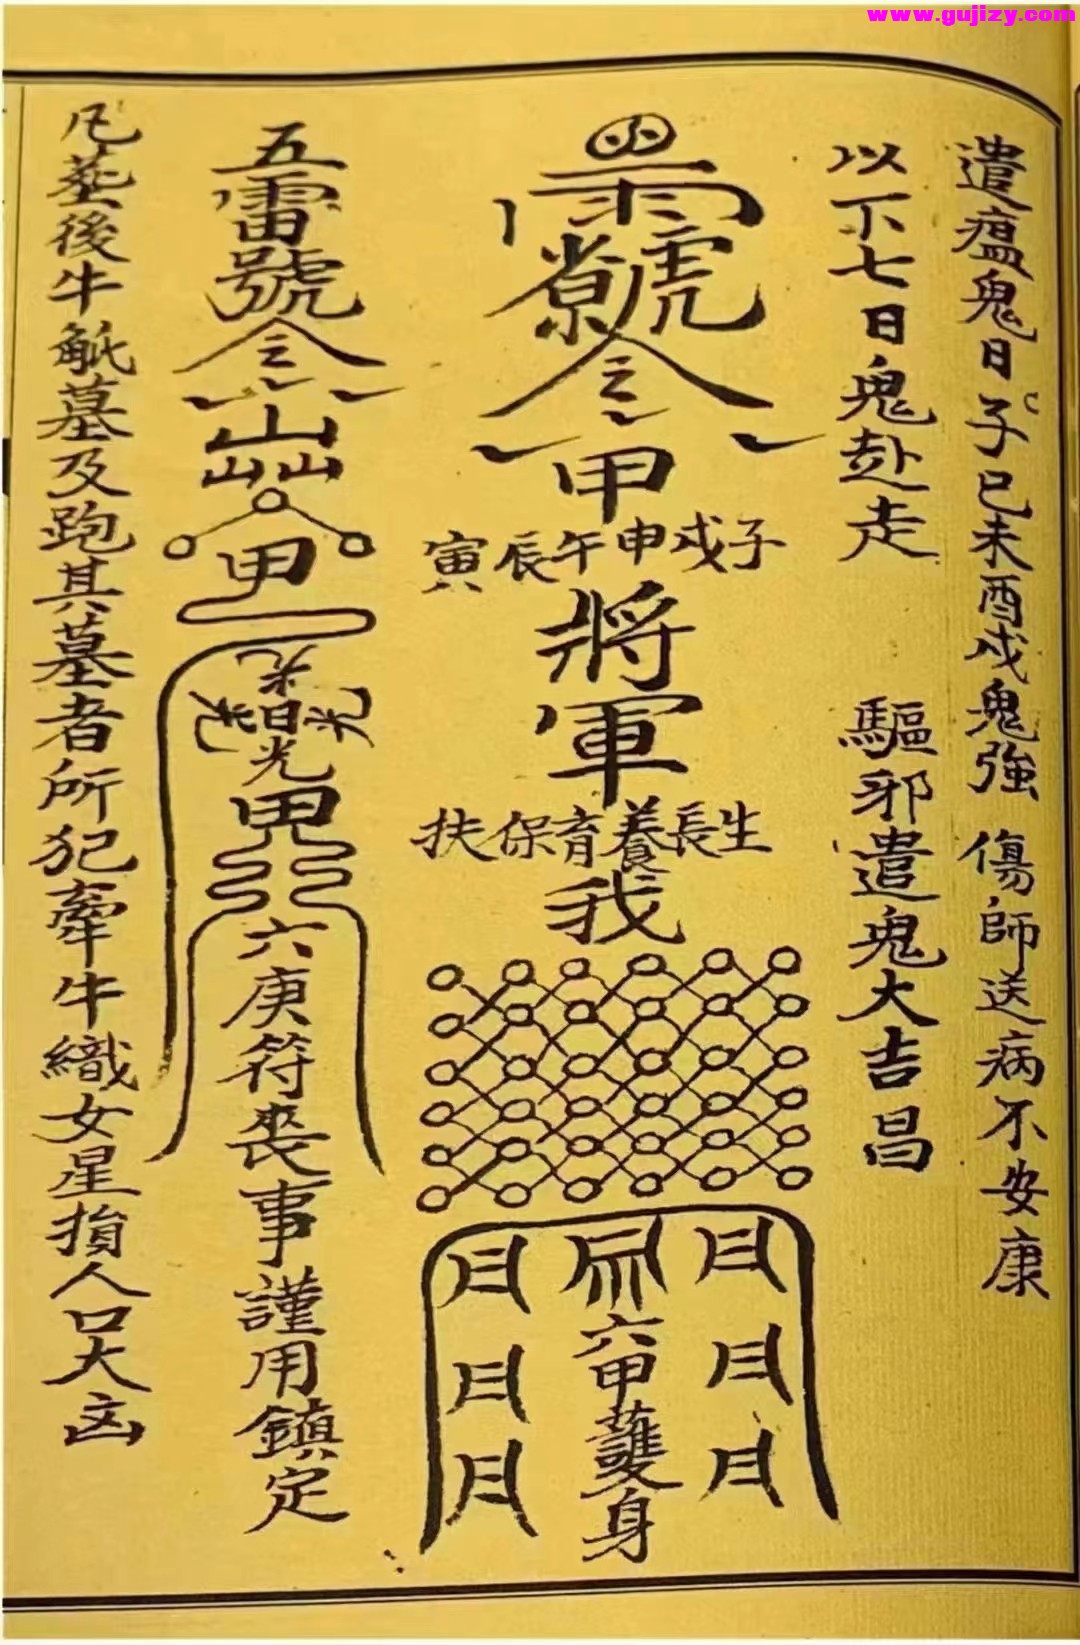 www.gujizy.com
遣瘟鬼日子巳未酉戌鬼強 傷師送病不安康
以下七日鬼赴走 驅邪遣鬼大吉昌
令
甲
寅辰午申戌子
將軍
扶保育養長生
我
六甲護身
五雷號令
甲
六庚符喪事謹用鎮定
凡葬後牛觝墓及跑其墓者所犯牽牛織女星損人口大凶